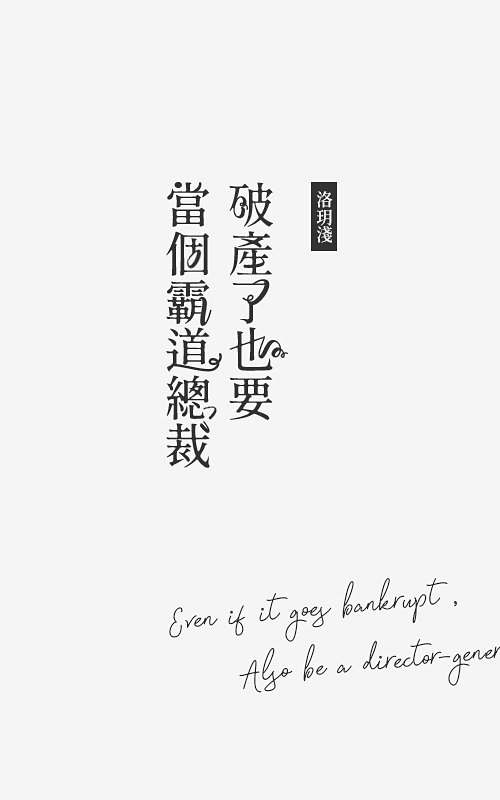 洛玥淺
破產了也要
當個霸道總裁
Even if it goes bankrupt ,
Also be a director-gener